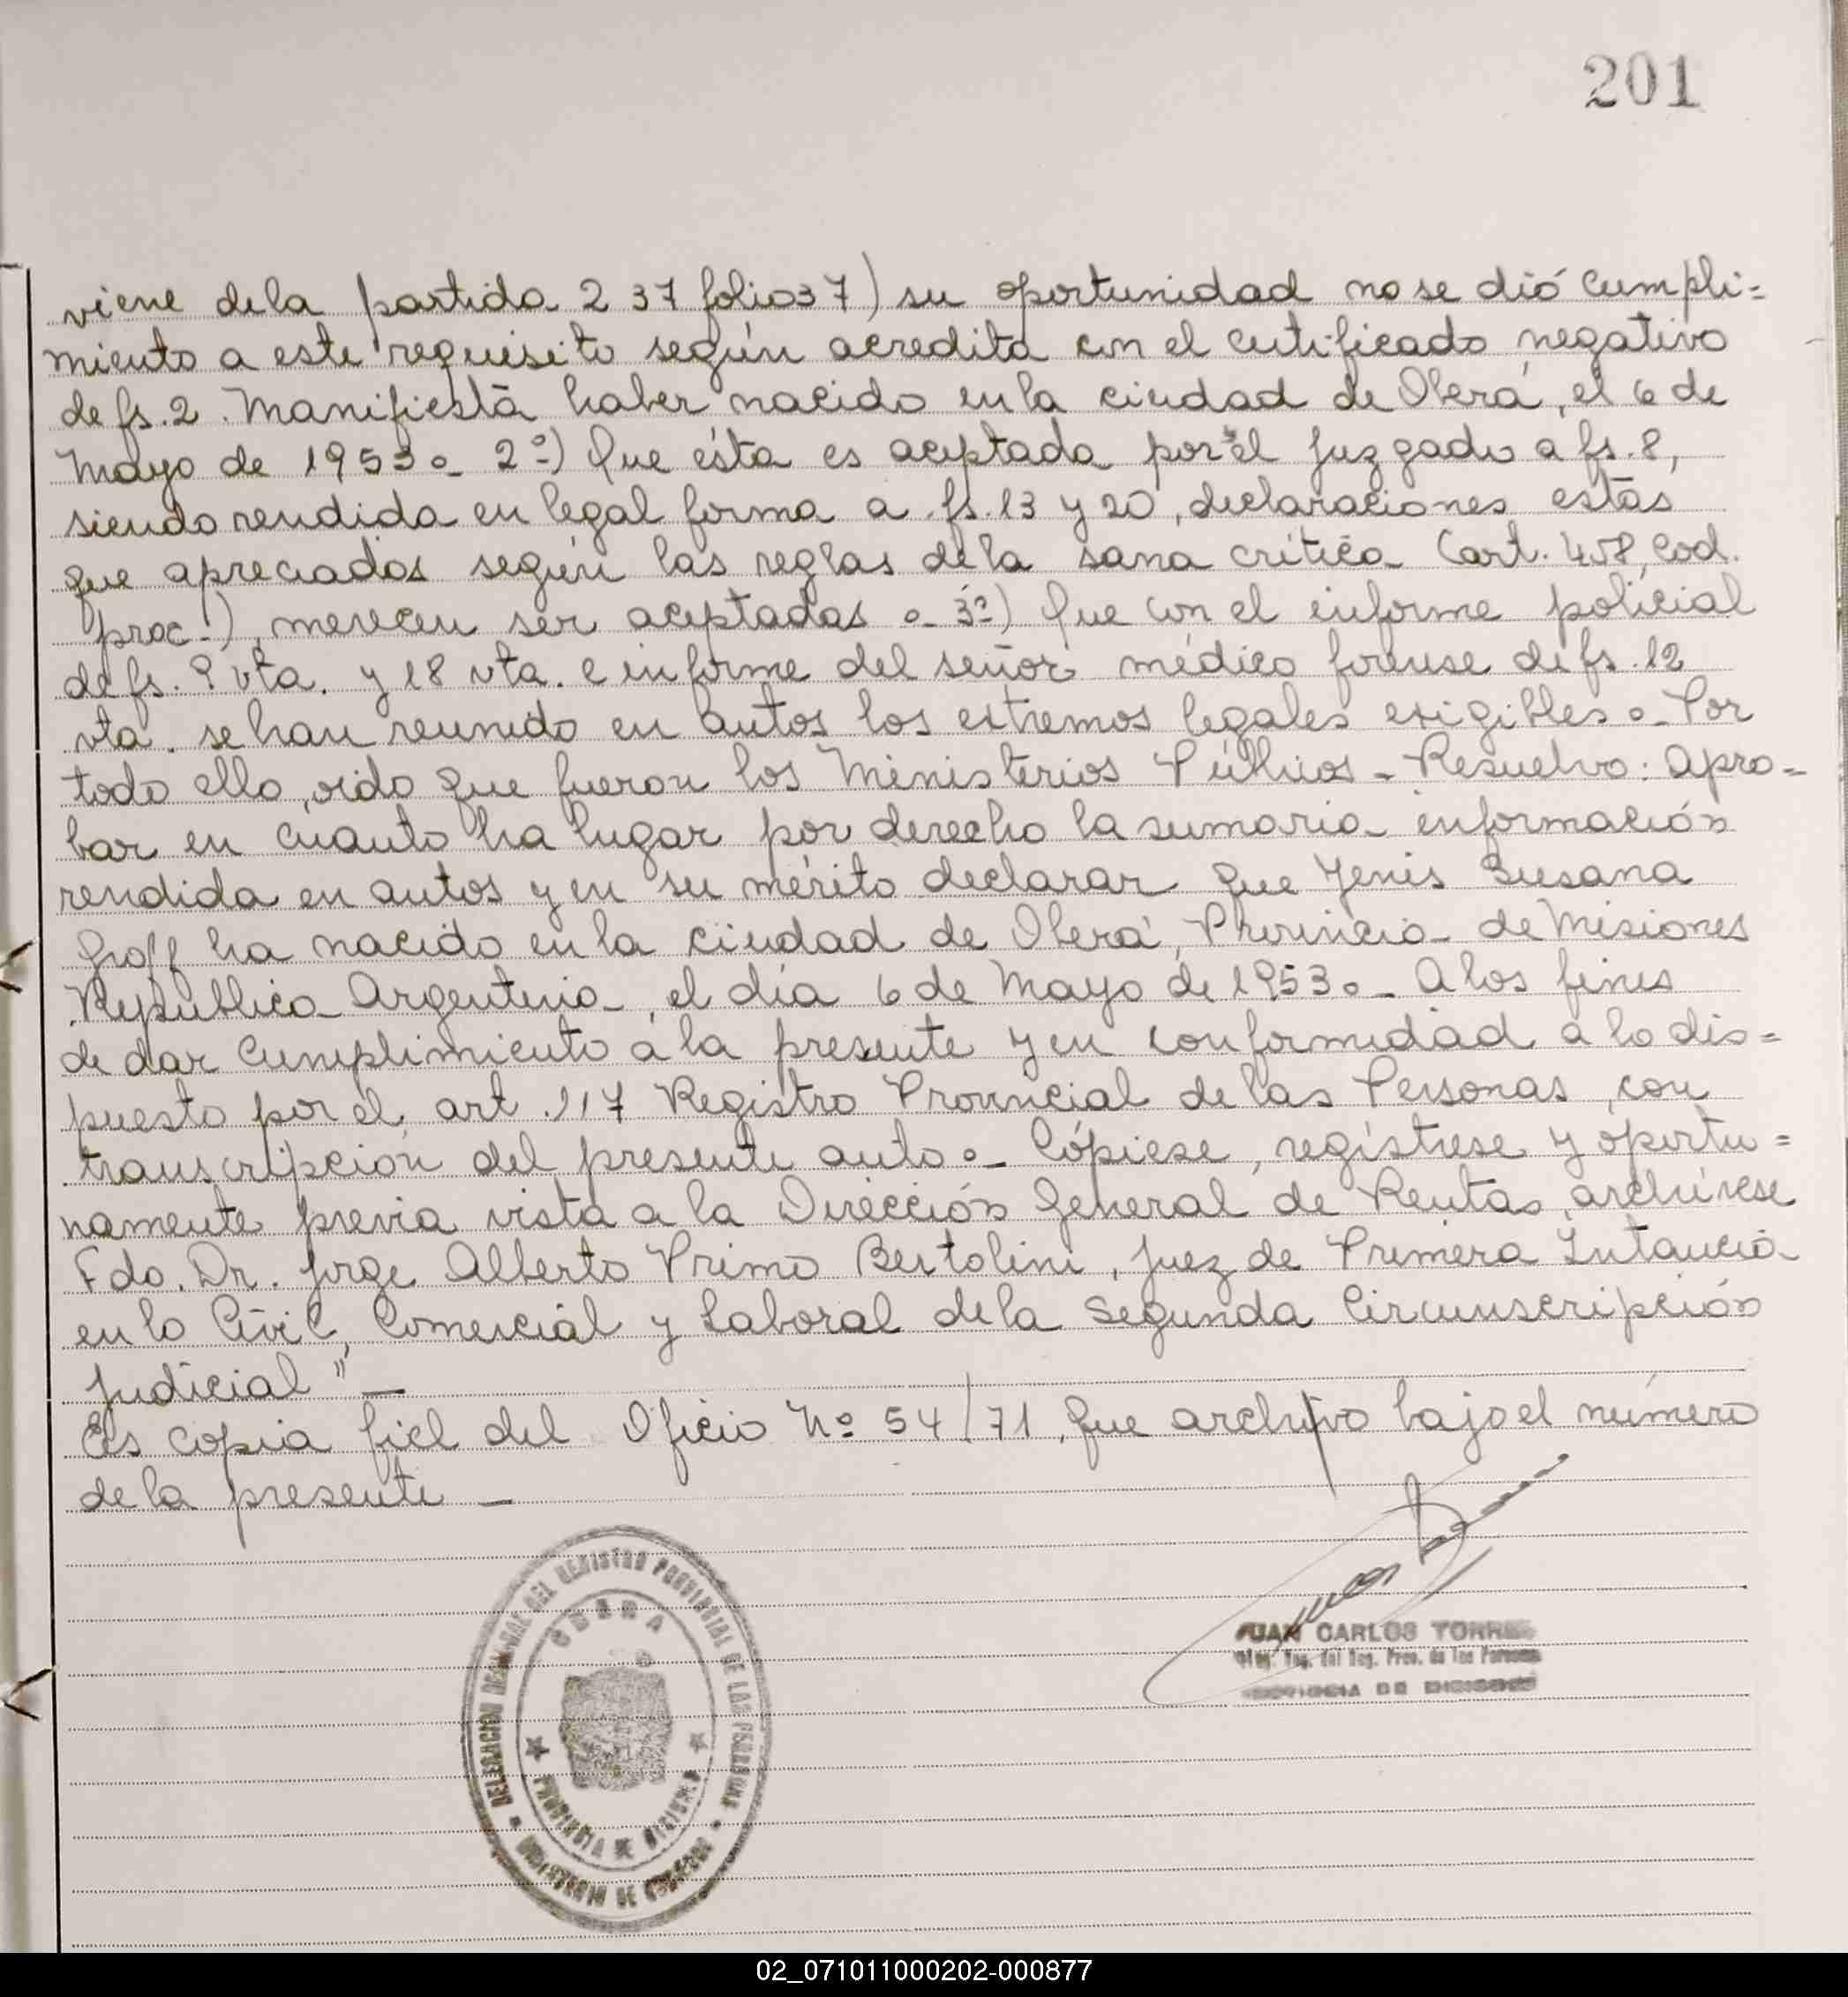 201
viene dela partida 237 folio 37) su oportunidad no se dió cumpli=
miento a este requisito según acredita con el certificado negativo
de fs. 2. Manifiesta haber nacido en la ciudad de Oberá, el 6 de
Mayo de 1953 o- 2º) Que ésta es aceptada por el Juzgado a fs. 8,
siendo rendida en legal forma a fs. 13 y 20, declaraciones estas
que apreciadas según las reglas de la sana crítica (art. 458, Cod.
proc.), merecen ser aceptadas o- 3º) Que con el informe policial
de fs. 9 vta. y 18 vta. e informe del señor médico forense de fs. 12
vta. se han reunido en autos los extremos legales exigibles o- Por
todo ello, oído que fueron los Ministerios Públicos - Resuelvo: Apro=
bar en cuanto ha lugar por derecho la sumaria información
rendida en autos y en su mérito declarar que Yenis Susana
Groff ha nacido en la ciudad de Oberá, Provincia de Misiones
República Argentina, el día 6 de Mayo de 1953 o- A los fines
de dar cumplimiento a la presente y en conformidad a lo dis=
puesto por el art. 117 Registro Provincial de las Personas, con
transcripción del presente auto o- Cópiese, regístrese y oportu=
namente previa vista a la Dirección General de Rentas, archívese
Fdo. Dr. Jorge Alberto Primo Bertolini, Juez de Primera Intancia
en lo Civil, Comercial y Laboral de la Segunda Circunscripción
Judicial" -
Es copia fiel del Oficio Nº 54/71, que archivo bajo el número
de la presente -
DEL REGISTRO PROVINCIAL DE LAS PERSONAS
OBERA
PROVINCIA DE MISIONES
MINISTERIO DE GOBIERNO
JUAN CARLOS TORRES
del Reg. Prov. de las Personas
PROVINCIA DE MISIONES
02_071011000202-000877